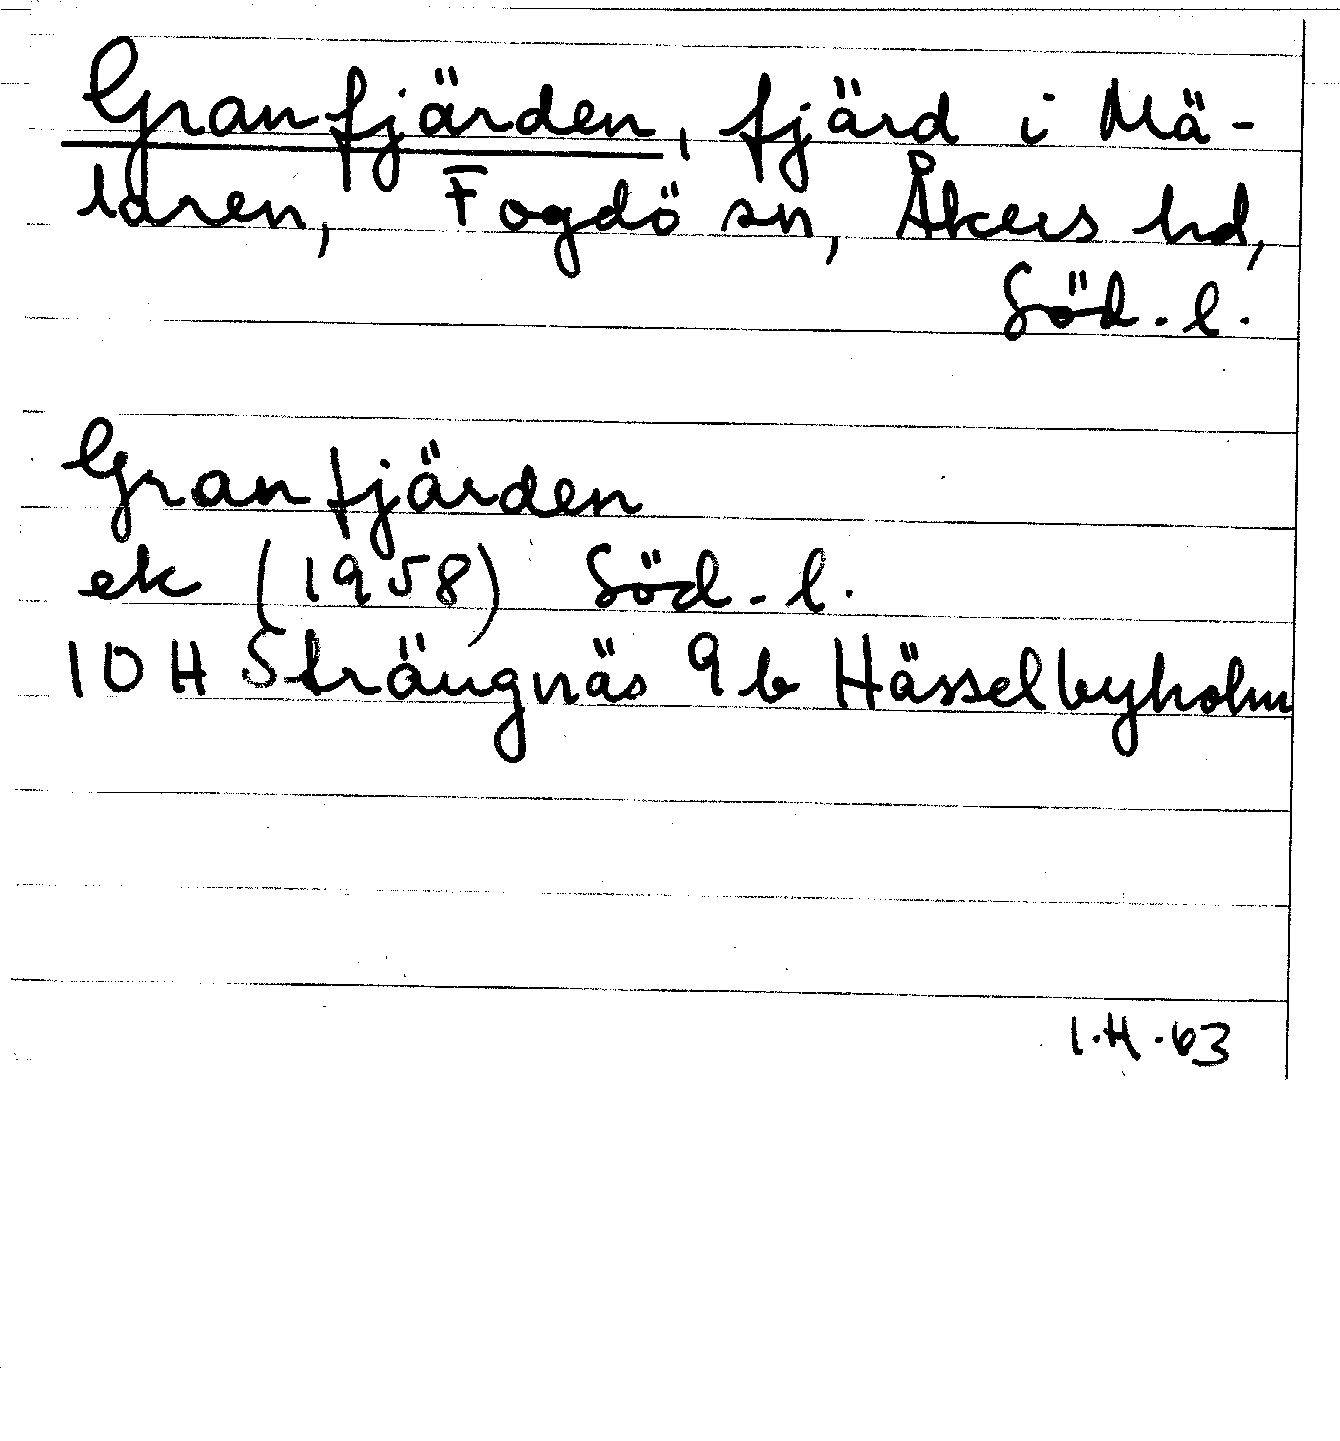 Granfjärden, fjärd i Mä-
laren, Fogdö sn, Åkers hd,
Söd. l.
Granfjärden
ek (1958) Söd. l.
10 H Strängnäs 9b Hässelbyholm
I.H. 63